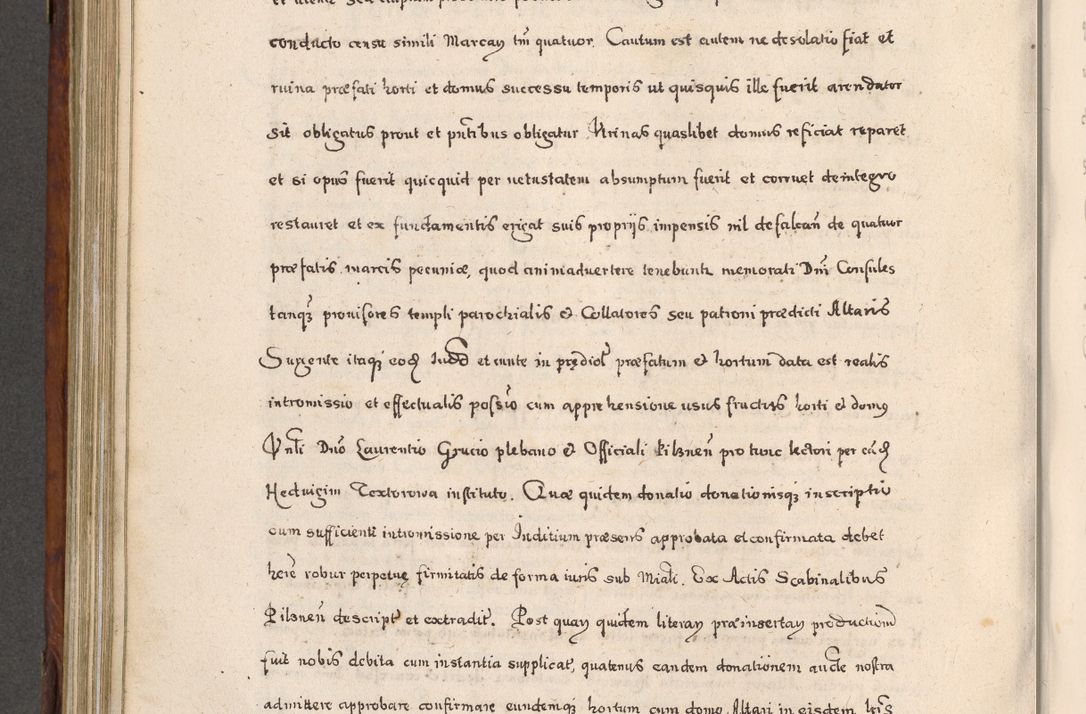 conducto censu simili Marcaɋ tm̃ quatuor. Cautum est autem ne desolatio fiat et
ruina præfati horti et domus successu temporis ut quisquis ille fuerit arendator
sit obligatus prout et pñtibus obligatur Urinas quaslibet domus reficiat reparet
et si opus fuerit quicquid per uetustatem absumptum fuerit et corruet de integro
restauret et ex fundamentis erigat suis proprijs impensis nil defalcañ de quatuor
præfatis marcis pecuniæ, quod animaduertere tenebunt memorati Dñi Consules
tanqꝫ prouisores templi parochialis & Collatores seu patroni prædicti Altaris
Surgente itaqꝫ eod Iudo et eunte in prediol præfatum & hortum data est realis
intromissio et effectualis possio cum apprehensione usus fructus horti & domus
Vnli Dno Laurentio Grucio plebano & Officiali Pilsneñ pro tunc lectori per ead
Heduigim Textorowa instituto. Quæ quidem donatio donationisqꝫ inscriptio
cum sufficienti intromissione per Iuditium præsens approbata et confirmata debet
here robur perpetuę firmitatis de forma iuris sub Miali. Ex Actis Scabinalibus
Pilsneñ descript et extradit. Post quaɋ quidem literaɋ præinsertaɋ productionem
fuit nobis debita cum instantia supplicat, quatenus eandem donationem aucte nostra
admittere approbare confirmare eundemqꝫ hortum cum domo Altari in eisdem lris